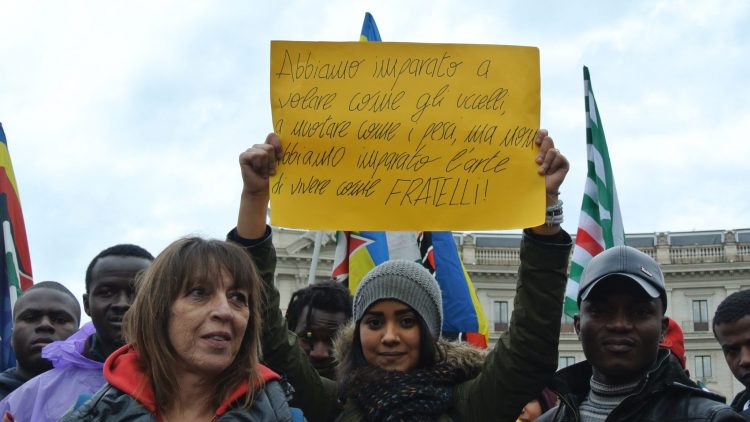 Abbiamo imparato a
volare come gli uccelli,
a nuotare come i pesci, ma non
abbiamo imparato l'arte
di vivere come FRATELLI!